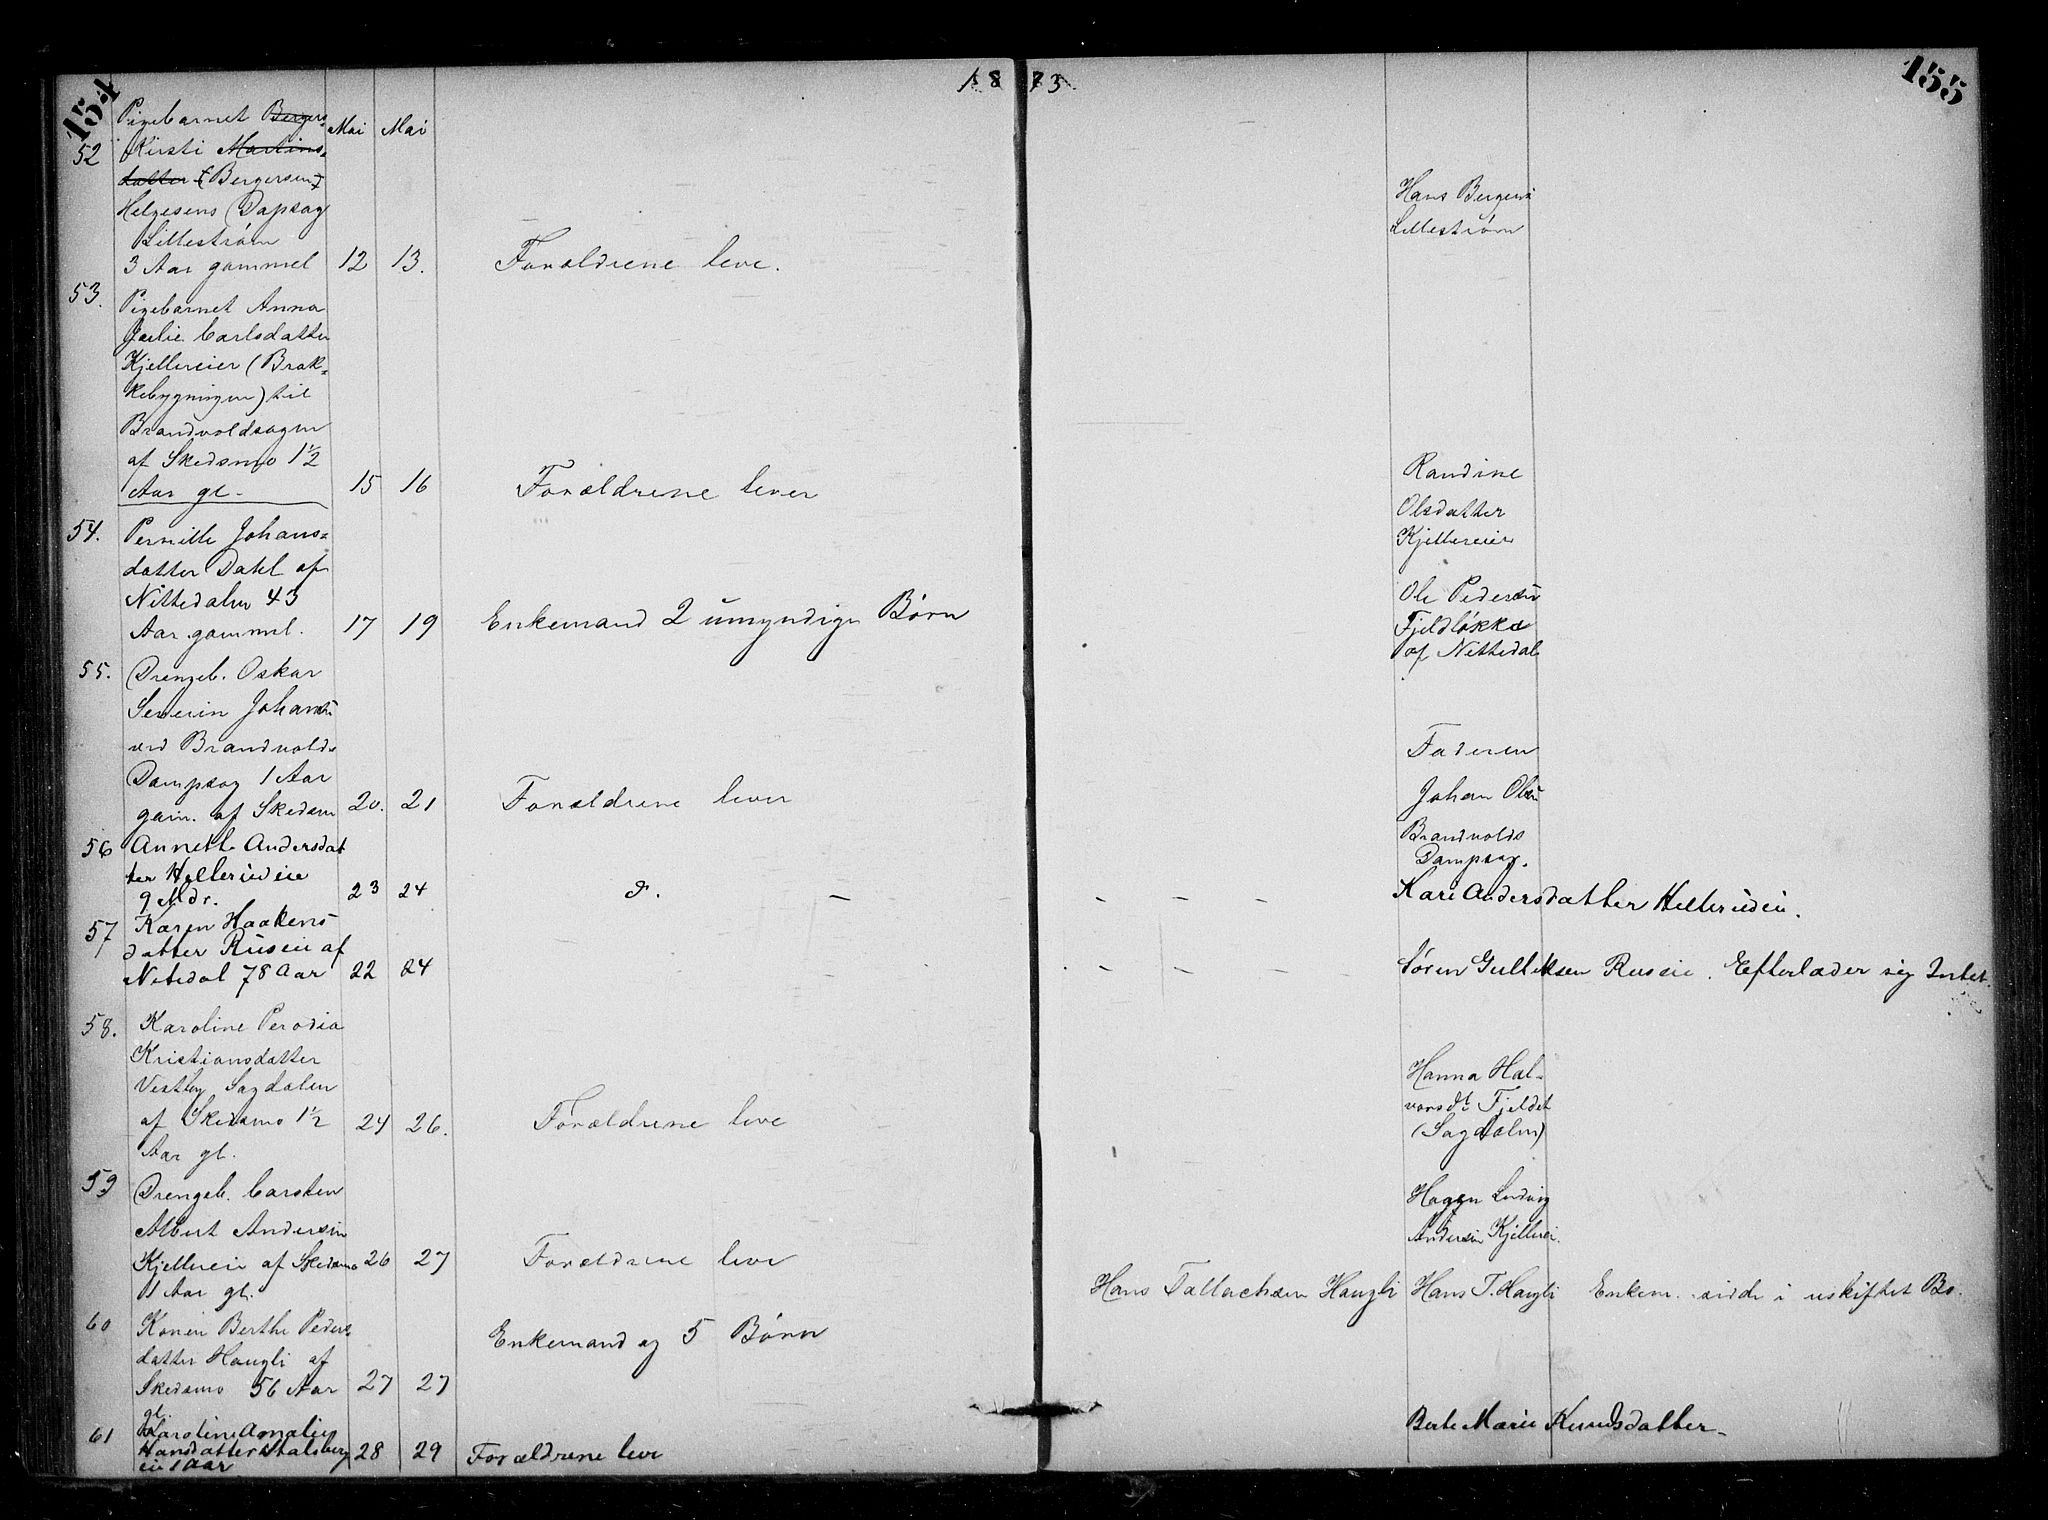 154
1873.
155
Mai Mai
52 Pigebarnet Berger
Kirsti Martins-
datter (Bergersen)
Helgesens (Dapsag
Lillestrøm
3 Aar gammel 12 13. Forældrene leve.
Hans Bergers
Lillestrøm
53. Pigebarnet Anna
Julie Carlsdatter
Kjellereier (Brak-
kebygningen) til
Brandvoldsagen
af Skedsmo 1½
Aar gl. 15 16 Forældrene lever
Randine
Olsdatter
Kjellereier
54. Pernille Johans-
datter Dahl af
Nittedalen 43
Aar gammel. 17 19 Enkemand 2 umyndige Børn
Ole Pedersen
Fjeldløkka
af Nittedal
55. Drengeb. Oskar
Severin Johansen
ved Brandvolds
Dampsag 1 Aar
gam. af Skedsm 20. 21 Forældrene lever
Faderen
Johan Olsen
Brandvolds
Dampsag.
56 Annette Andersdat
ter Hellerudeie
9 Mdr. 23 24 d. — - - - Kari Andersdatter Hellerudeie.
57 Karen Haakens
datter Ruseie af
Nitedal 78 Aar 22 24 - - - Søren Gulliksen Ruseie. Efterlader sig Intet.
58. Karoline Perodia
Kristiansdatter
Vestby Sagdalen
af Skedsmo 1½
Aar gl. 24 26. Forældrene leve
Hanna Hal-
vorsdt. Fjeldet
(Sagdalen)
59 Drengeb. Carsten
Albert Andersen
Kjellereie af Skedsmo 26 27 Forældrene leve
1 Aar gl.
Hagen Ludvig
Andersen Kjellerei.
60 Konen Berthe Peders-
datter Haugli af
Skedsmo 56 Aar 27 27 Enkemand og 5 Børn
gl.
Hans Tallachsen Haugli Hans T. Haugli Enkem. sidde i uskiftet Bo.
61 Karoline Amalie
Hansdatter Stalsberg
eie 1 Aar 28 29 Forældrene leve
Berte Marie Knudsdatter